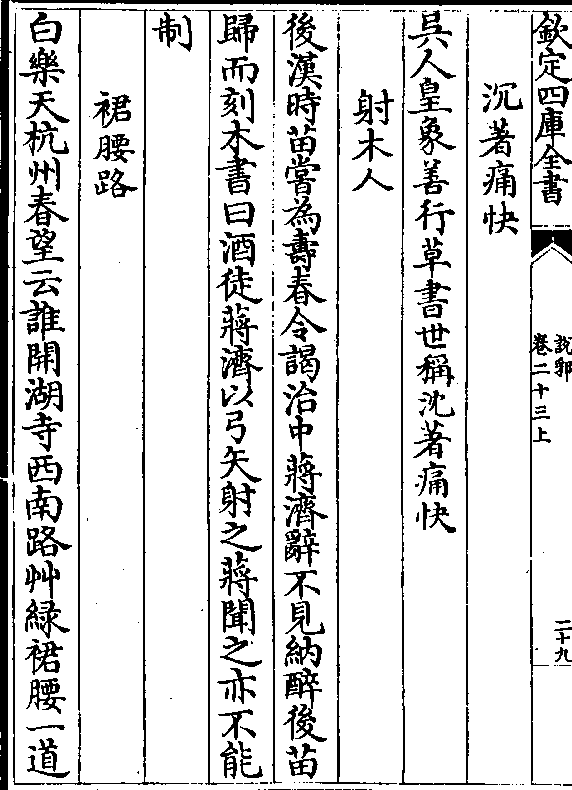 欽定四庫全書
說郛
卷二十三上
二十九
沉著痛快
吳人皇象善行草書世稱沈著痛快
射木人
後漢時苗嘗為壽春令謁治中蔣濟辭不見納醉後苗
歸而刻木書曰酒徒蔣濟以弓矢射之蔣聞之亦不能
制
裙腰路
白樂天杭州春望云誰開湖寺西南路艸緑裙腰一道